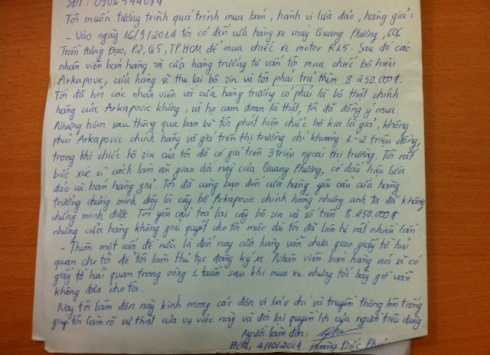 Tôi muốn tường trình quá trình mua bán, hành vi lừa đảo, hàng giả:
- Vào ngày 16/9/2014 tôi có đến cửa hàng xe máy Quang Phương, 606
Trần Hưng Đạo, P2, Q5, TP.HCM để mua chiếc xe motor R15. Sau đó các
nhân viên bán hàng và cửa hàng trưởng tư vấn tôi mua chiếc pô hiệu
Arkapovic, cửa hàng sẽ thu lại pô zin và tôi phải trả thêm 8.250.000đ
Tôi đã hỏi các nhân viên và cửa hàng trưởng có phải là pô thật chính
hãng của Arkapovic không, và họ cam đoan là thật, tôi đã đồng ý mua.
Nhưng hôm sau thông qua bạn bè tôi phát hiện chiếc pô kia là giả, không
phải Arkapovic chính hãng và giá trên thị trường chỉ khoảng 1-2 triệu đồng,
trong khi chiếc pô zin của tôi đã có giá trên 3 triệu ngoài thị trường. Tôi rất
bức xúc vì cách làm ăn gian dối này của Quang Phương, có dấu hiệu lừa
đảo và bán hàng giả. Tôi đã cùng bạn đến cửa hàng yêu cầu cửa hàng
trưởng chứng minh đây là cây pô Arkapovic chính hãng nhưng anh ta đã không
chứng minh được. Tôi yêu cầu trả lại cây pô zin và số tiền 8.250.000đ
nhưng cửa hàng không giải quyết cho tôi mặc dù tôi đã liên hệ rất nhiều lần
- Thêm một vấn đề nữa là đến nay cửa hàng vẫn chưa giao giấy tờ hải
quan cho tôi để tôi làm thủ tục đăng ký xe. Nhân viên bán hàng nói sẽ có
giấy tờ hải quan trong vòng 1 tuần sau khi mua xe nhưng tới bây giờ vẫn
không đưa cho tôi.
Nay tôi làm đơn này kính mong các đơn vị báo chí và truyền thông lên tiếng
giúp tôi làm rõ sự thật của vụ việc này và đòi lại quyền lợi của người tiêu dùng
Người làm đơn:
HCM, 4/10/2014 Hoàng Đức